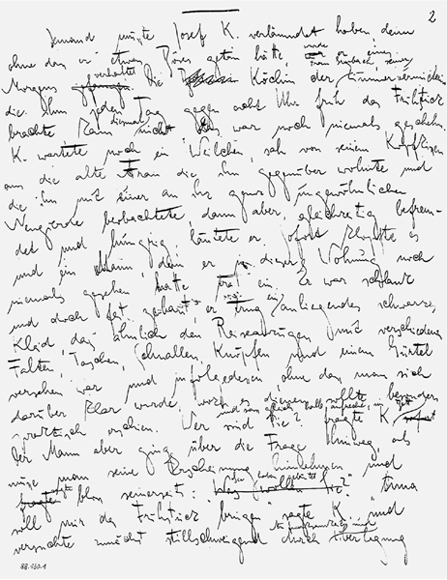 2
Jemand musste Josef K. verläumdet haben, denn
ohne dass er etwas Böses getan hätte, wurde er eines
Morgens verhaftet. Die Köchin der Zimmervermieterin
die ihm jeden Tag gegen acht Uhr früh das Frühstück
brachte kam diesmal nicht. Das war noch niemals geschehn
K. wartete noch ein Weilchen, sah von seinem Kopfkissen
aus die alte Frau die ihm gegenüber wohnte und
die ihn mit einer an ihr ganz ungewöhnlichen
Neugierde beobachtete, dann aber, gleichzeitig befrem-
det und hungrig, läutete er. Sofort klopfte es
und ein Mann, den er in dieser Wohnung noch
niemals gesehen hatte trat ein. Er war schlank
und doch fest gebaut, er trug ein anliegendes schwarzes
Kleid, das ähnlich den Reiseanzügen mit verschiedenen
Falten, Taschen, Schnallen, Knöpfen und einem Gürtel
versehen war und infolgedessen, ohne dass man sich
darüber klar wurde, wozu es dienen sollte, besonders
praktisch erschien. Wer sind Sie? fragte K.
und sass gleich halb aufrecht im Bett
Der Mann aber ging über die Frage hinweg, als
müsse man seine Erscheinung hinnehmen und
sagte bloss seinerseits: Sie haben geläutet? Anna
soll mir das Frühstück bringen sagte K. und
versuchte zunächst stillschweigend durch
Aufmerksamkeit und Überlegung
88.160.1